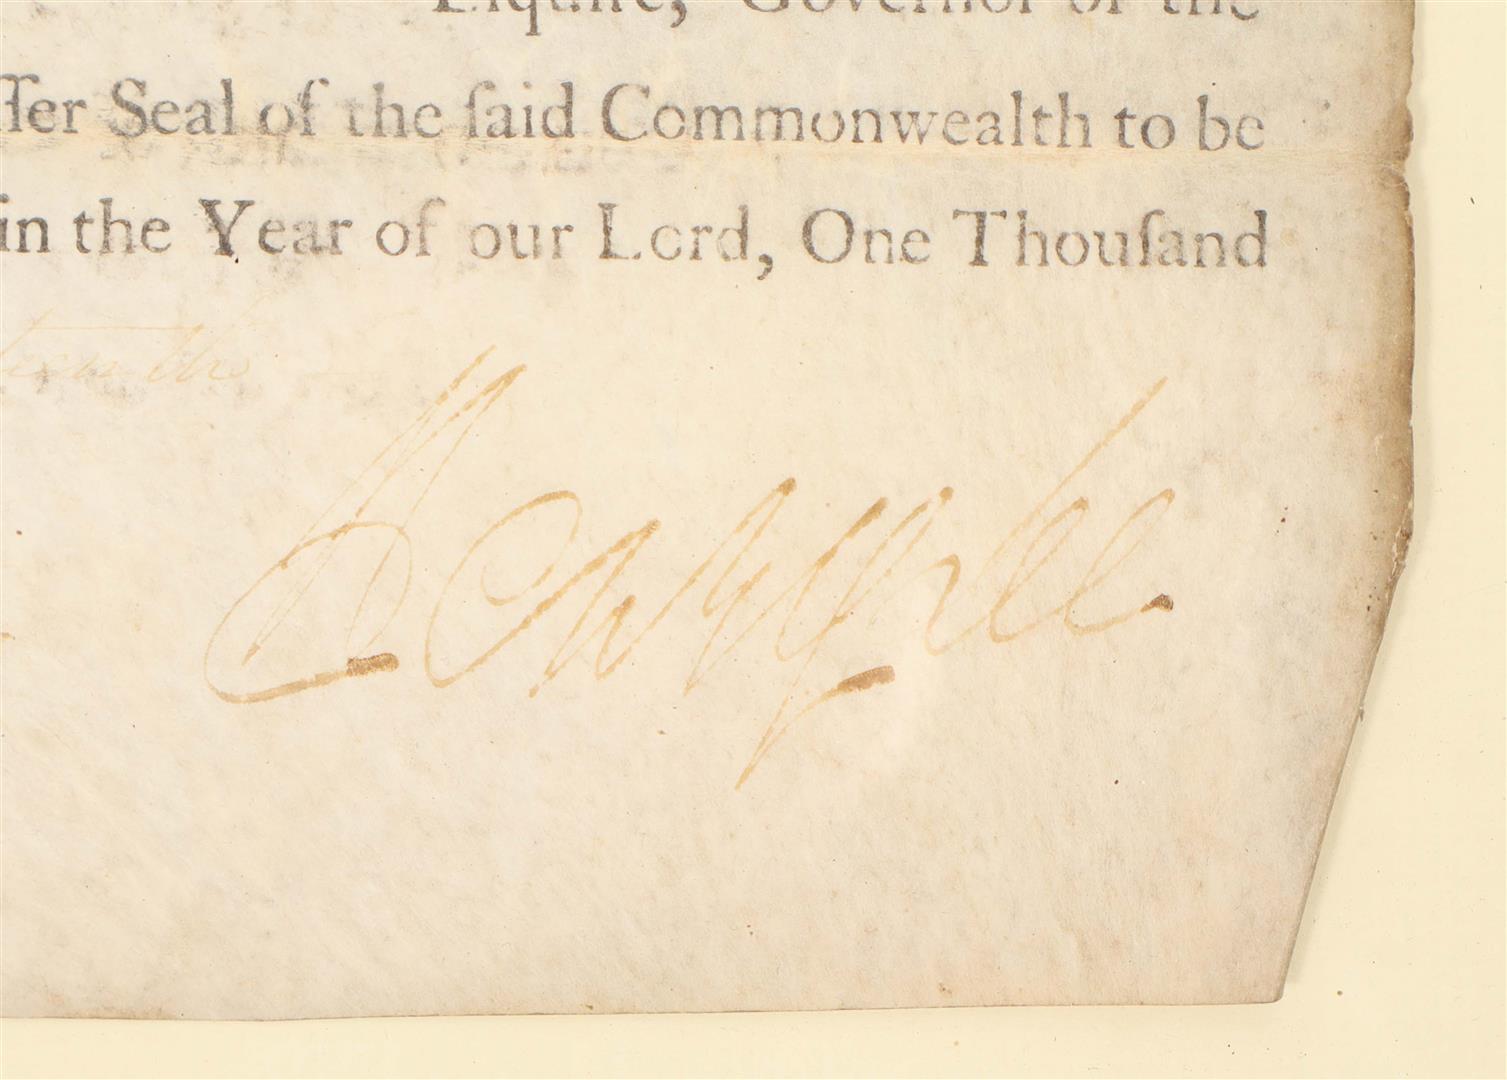 Esquire, Governor of the
ſſer Seal of the ſaid Commonwealth to be
in the Year of our Lord, One Thouſand
teenth